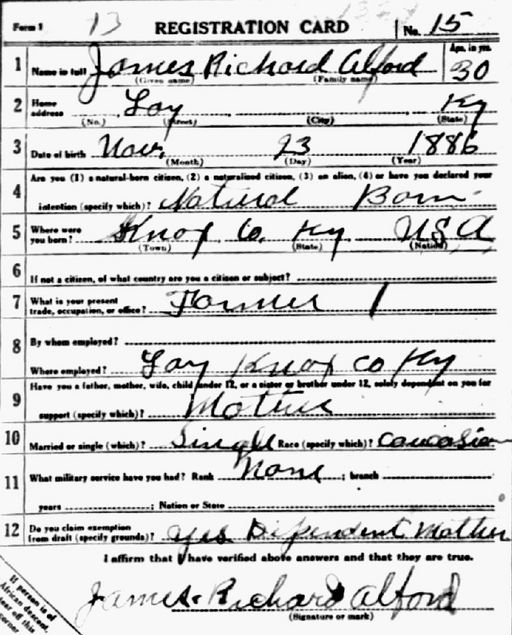 Form 1 13 REGISTRATION CARD No. 15
1 Name in full James Richard Alford Age, in yrs. 30
(Given name) (Family name)
2 Home address Loy Ky
(No.) (Street) (City) (State)
3 Date of birth Nov. 23 1886
(Month) (Day) (Year)
Are you (1) a natural-born citizen, (2) a naturalized citizen, (3) an alien, (4) or have you declared your
4 intention (specify which)? Natural Born
5 Where were you born? Knox Co. Ky USA
(Town) (State) (Nation)
6 If not a citizen, of what country are you a citizen or subject?
7 What is your present trade, occupation, or office? Farmer 1
8 By whom employed?
Where employed? Loy Knox Co Ky
Have you a father, mother, wife, child under 12, or a sister or brother under 12, solely dependent on you for
9 support (specify which)? Mother
10 Married or single (which)? Single Race (specify which)? Caucasian
11 What military service have you had? Rank None ; branch
years ; Nation or State
12 Do you claim exemption from draft (specify grounds)? Yes Dependent Mother
I affirm that I have verified above answers and that they are true.
James Richard Alford
(Signature or mark)
If person is of
African descent,
tear off this
corner